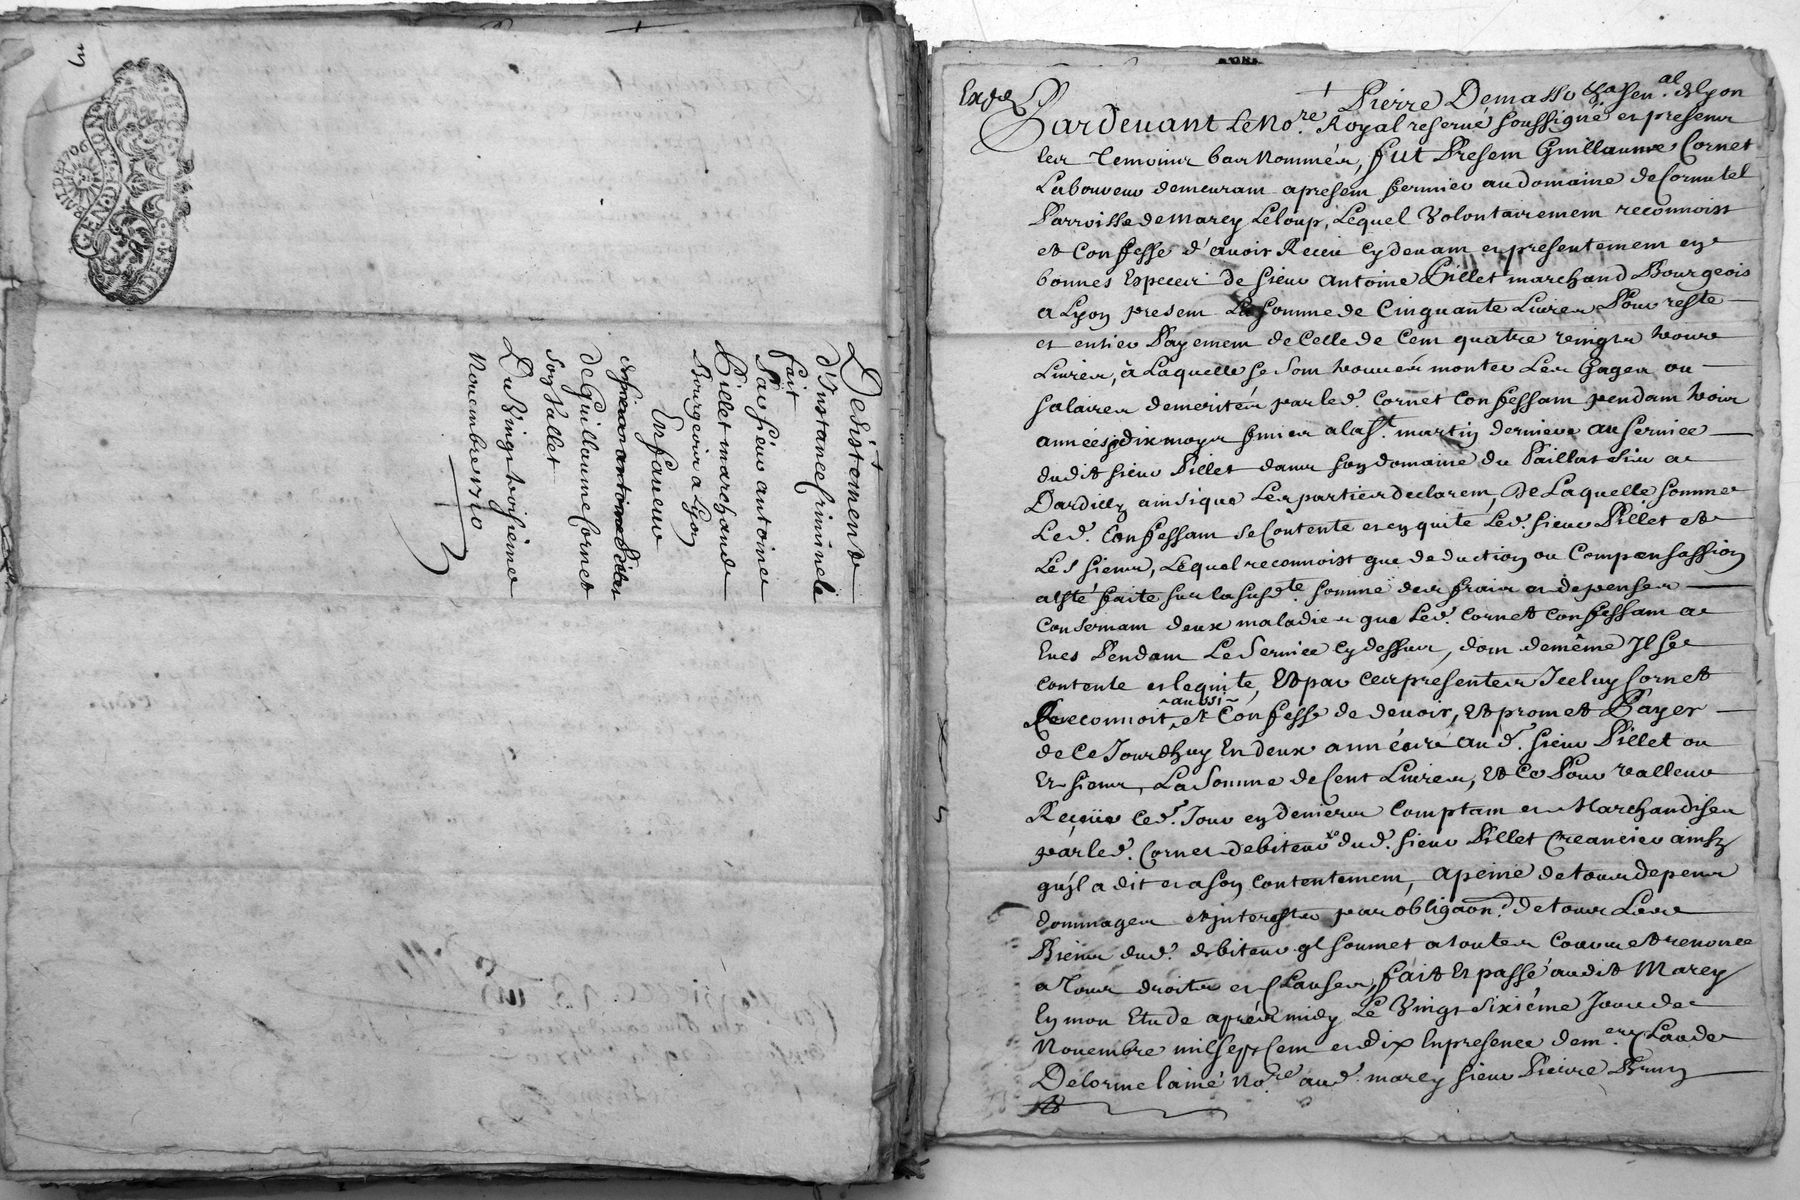 3
GEN. DES. LIONS
Desistement
d'Instance Criminele
fait
Par sieur antoine
Pillet marchand
Bourgeois a Lyon
En faveur
de Guillaume Cornet
son Vallet
Du Vingt troisieme
Novembre 1710
Exped
Pierre Demasso
sen.al de Lyon
Pardevant Le No.re Royal reservé soussigné et presens
les Temoins bas Nommés, fut Present Guillaume Cornet
Laboureur demeurant apresent fermier au domaine de Cornutel
Parroisse de Marcy Le loup, Lequel Volontairement reconnoist
et Confesse d'avoir Receu cy devant et presentement en
bonnes Especes de sieur Antoine Pillet marchand Bourgeois
a Lyon present La somme de Cinquante Livres Pour reste
et entier Payement de Celle de Cent quatre vingts
Livres, à Laquelle se sont trouvés monter Les Gages ou
salaires demerités par led. Cornet Confessant pendant trois
années dix moys finies a la s.t martin derniere au service
dudit sieur Pillet dans son domaine du Paillat sis a
Dardilly ainsi que Les parties declarent, De Laquelle somme
Led. Confessant se Contente et en quite Led. sieur Pillet et
Les siens, Lequel reconnoist que deduction ou Compensassion
a esté faite sur la susd.te somme des frais et depenses
Consernant deux maladies que Led. Cornet Confessant a
Eues Pendant Le service cy dessus, dont de même Il se
contente et le quite, Et par ces presentes Iceluy Cornet
aussi
Reconnoit et Confesse de devoir, Et promet Payer
de Ce Jourdhuy En deux années au d. sieur Pillet ou
Es siens, La somme de Cent Livres, Et Ce Pour valleur
Reçüe Ced. Jour en deniers Comptant et Marchandises
par led. Cornet debiteur dud. sieur Pillet Creancier ainsy
qu'il a dit et a son contentement, a peine de tous depens
dommages et interests par obligaon de tous Les
Biens dud. debiteur ql soumet a toutes Cours et renonce
a Tous droits et Clauses, fait Et passé audit Marcy
En mon Etude aprés midy Le Vingt sixiéme Jour de
Novembre mil sept Cent et dix En presence de m.e Claude
Delorme lainé No.re aud. marcy sieur Pierre Brun